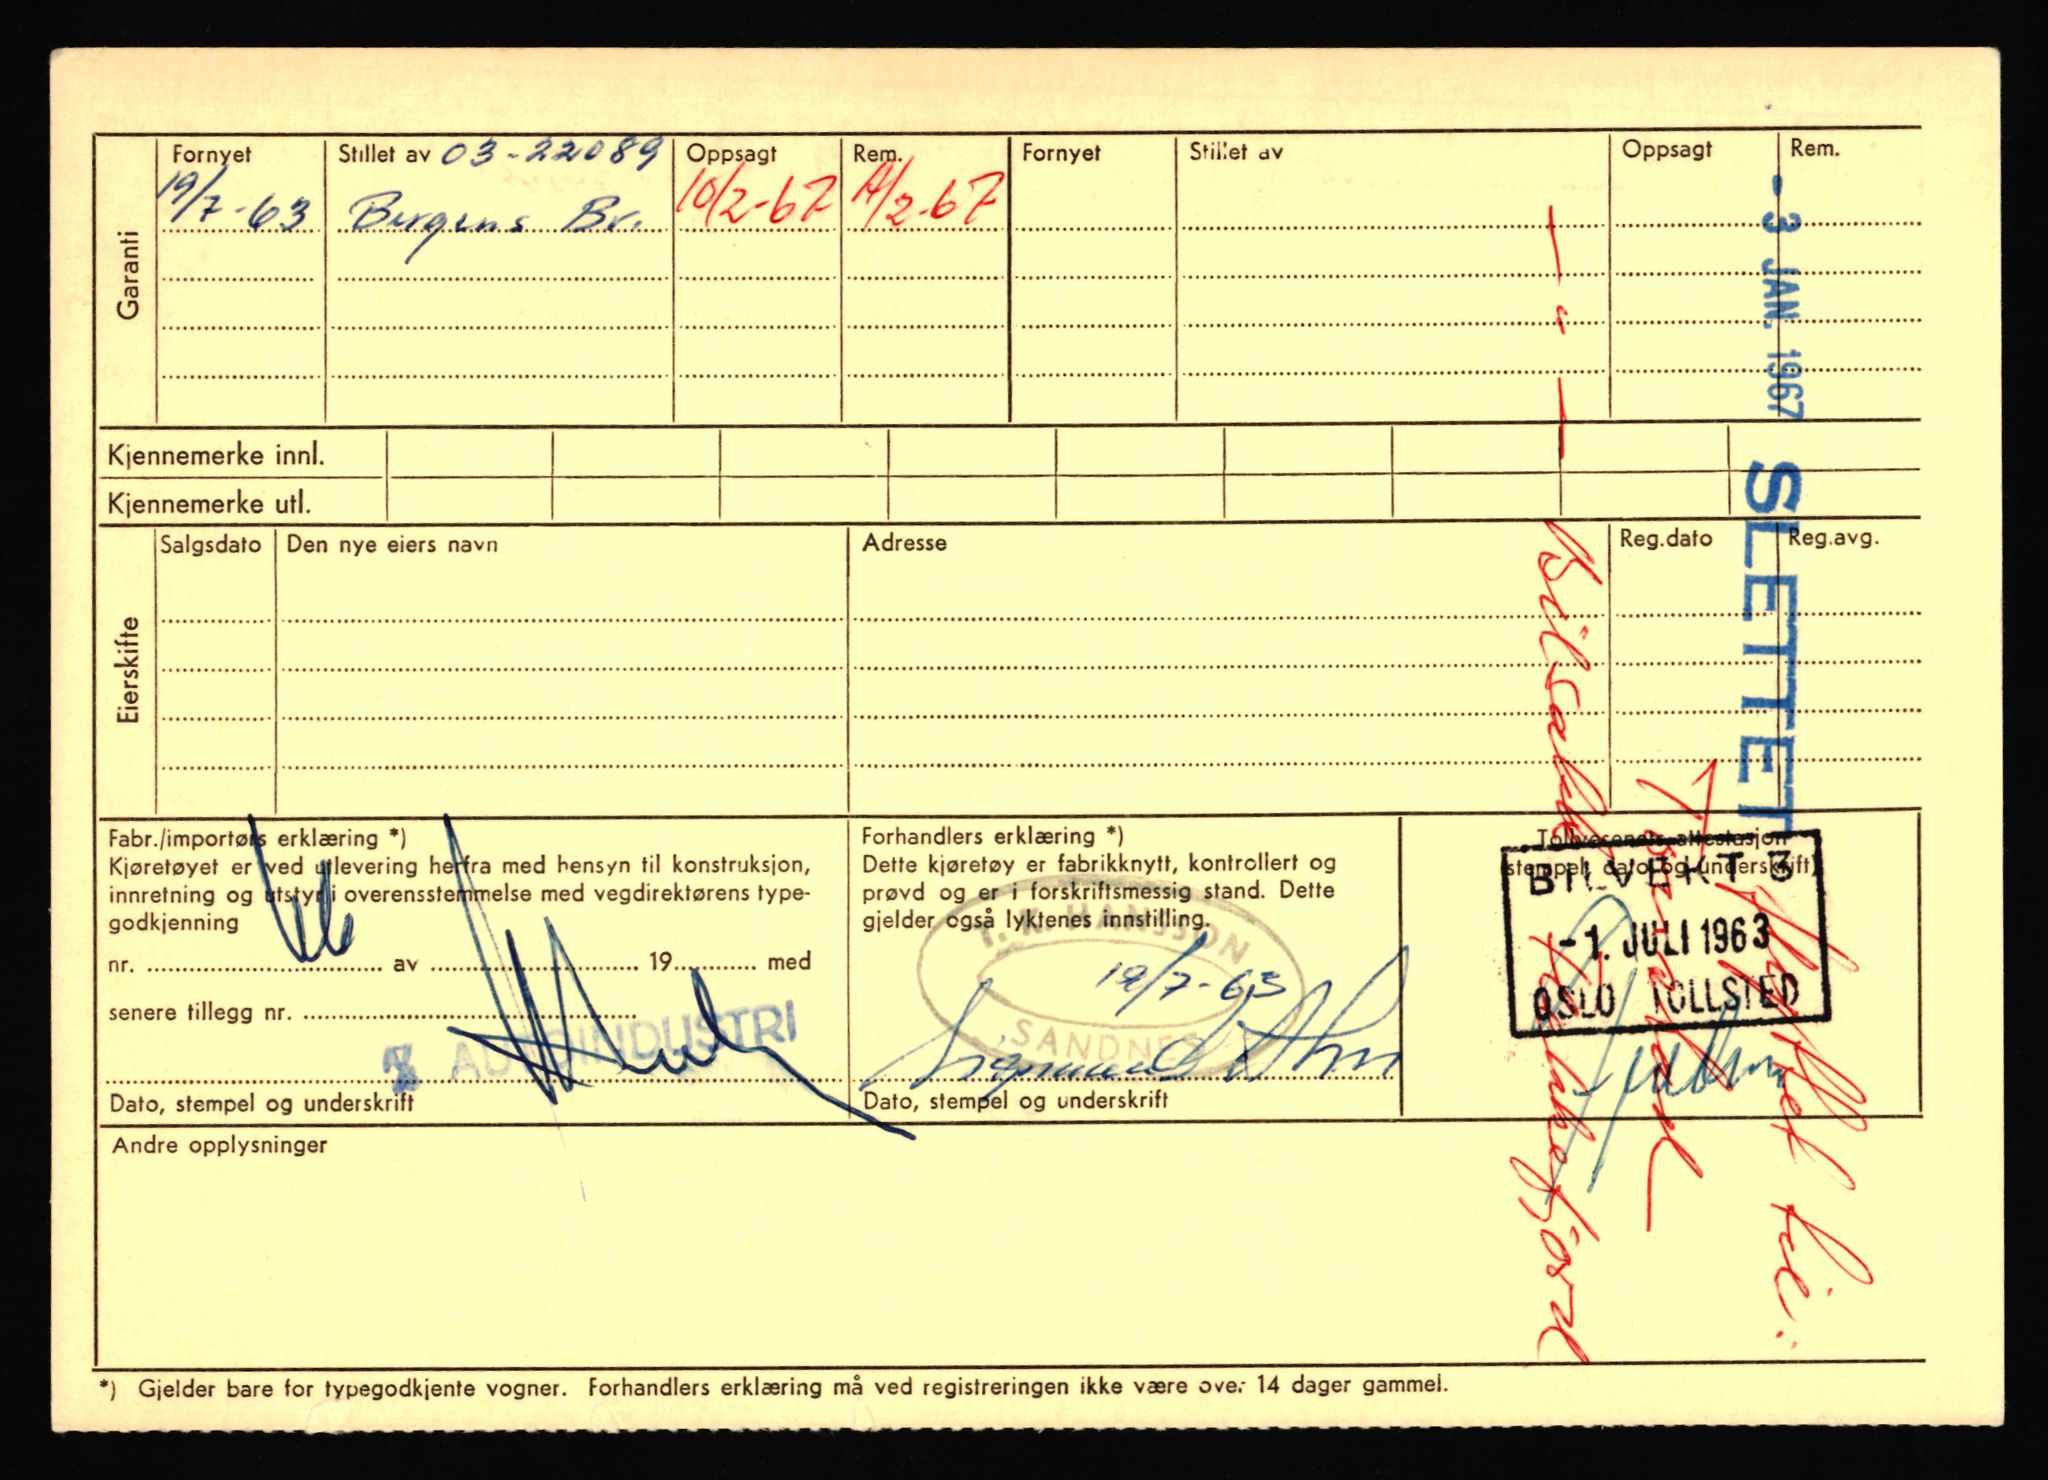 Garanti
Fornyet
Stillet av 03-22089
Oppsagt
Rem.
Fornyet
Stillet av
Oppsagt
Rem.
19/7-63
Bergens Br.
10/2-67
/2-67
- 3 JAN. 1967
SLETTET
— " —
Kjennemerke innl.
Kjennemerke utl.
Eierskifte
Salgsdato
Den nye eiers navn
Adresse
Reg.dato
Reg.avg.
Fabr./importørs erklæring *)
Kjøretøyet er ved utlevering herfra med hensyn til konstruksjon,
innretning og utstyr i overensstemmelse med vegdirektørens type-
godkjenning
nr. av 19 med
senere tillegg nr.
AUTOINDUSTRI
Dato, stempel og underskrift
Forhandlers erklæring *)
Dette kjøretøy er fabrikknytt, kontrollert og
prøvd og er i forskriftsmessig stand. Dette
gjelder også lyktenes innstilling.
HANSSON
SANDNES
19/7-63
Sigmund
Dato, stempel og underskrift
Tollvesenets attestasjon
(stempel, dato og underskrift)
BILVEKT 3
-1. JULI 1963
OSLO TOLLSTED
flyttet til:
Bilsakk.
Andre opplysninger
*) Gjelder bare for typegodkjente vogner. Forhandlers erklæring må ved registreringen ikke være over 14 dager gammel.